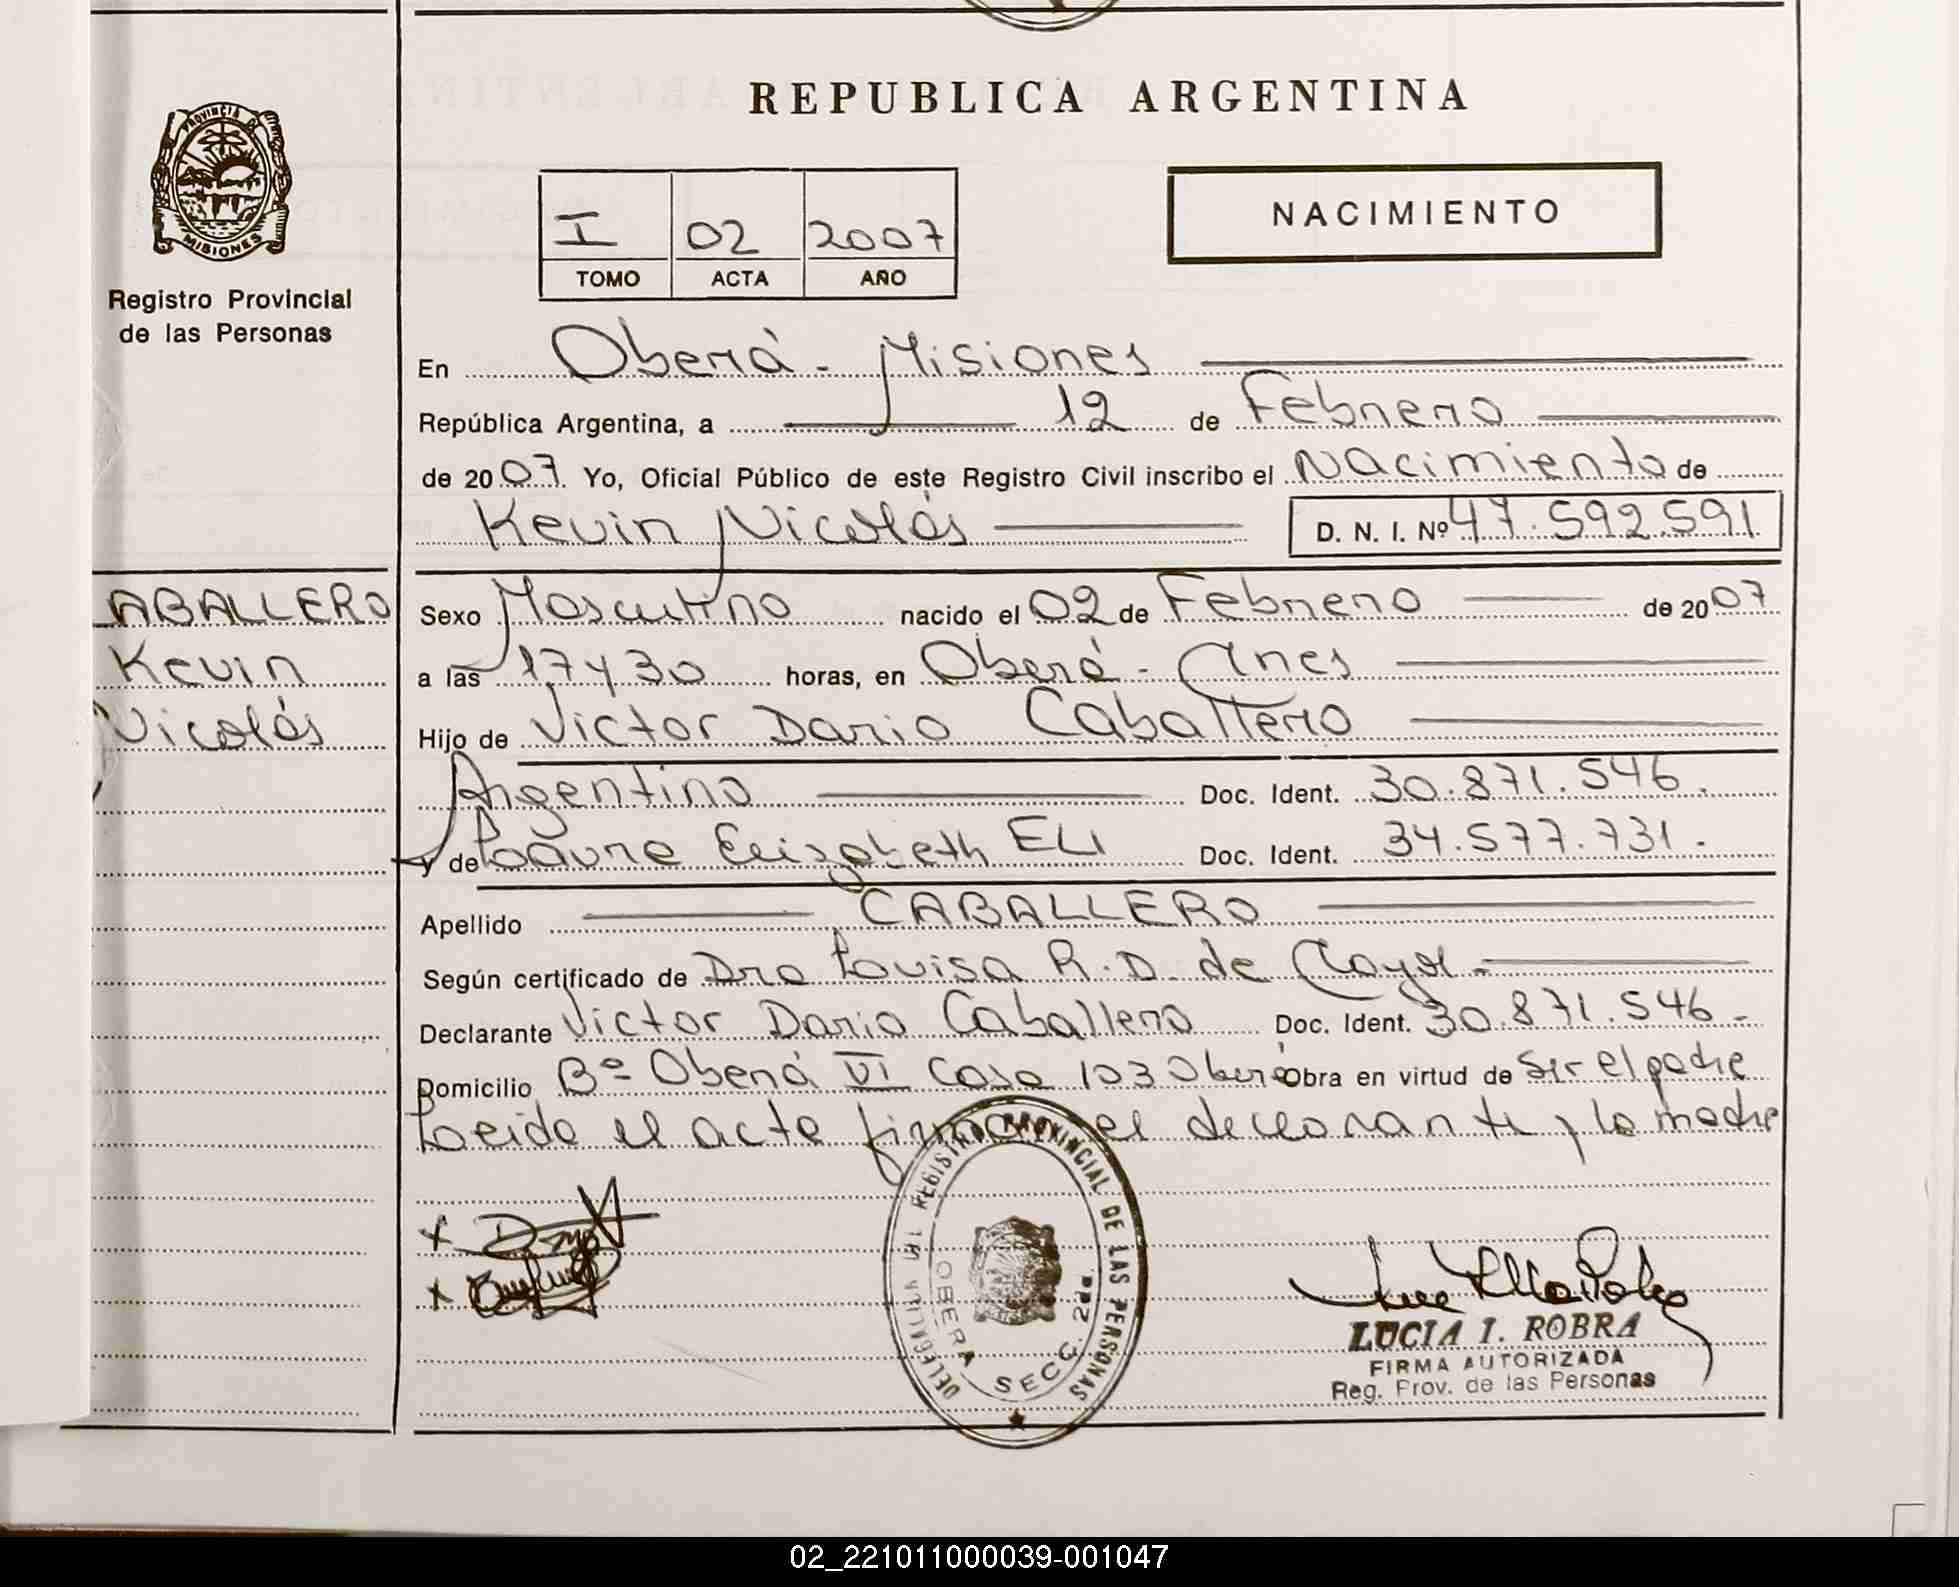 REPUBLICA ARGENTINA
PROVINCIA DE
MISIONES
Registro Provincial
de las Personas
I 02 2007
TOMO ACTA AÑO
NACIMIENTO
En Oberá - Misiones
República Argentina, a 12 de Febrero
de 2007. Yo, Oficial Público de este Registro Civil inscribo el Nacimiento de
Kevin Nicolás D. N. I. Nº 47.592.591
ABALLERO
Kevin
Nicolás
Sexo Masculino nacido el 02 de Febrero de 2007
a las 17 y 30 horas, en Oberá - Mnes
Hijo de Victor Dario Caballero
Argentino Doc. Ident. 30.871.546.
y de Laura Elizabeth ELI Doc. Ident. 34.577.731.
Apellido CABALLERO
Según certificado de Dra Louisa R. D. de
Declarante Victor Dario Caballero Doc. Ident. 30.871.546-
Domicilio Bº Oberá VI Casa 103 Oberá Obra en virtud de Ser el padre
Leida el acta firma el declarante y la madre
DELEGACION DEL REGISTRO PROVINCIAL DE LAS PERSONAS
OBERA SECC. 2da.
LUCIA I. ROBRA
FIRMA AUTORIZADA
Reg. Prov. de las Personas
02_221011000039-001047